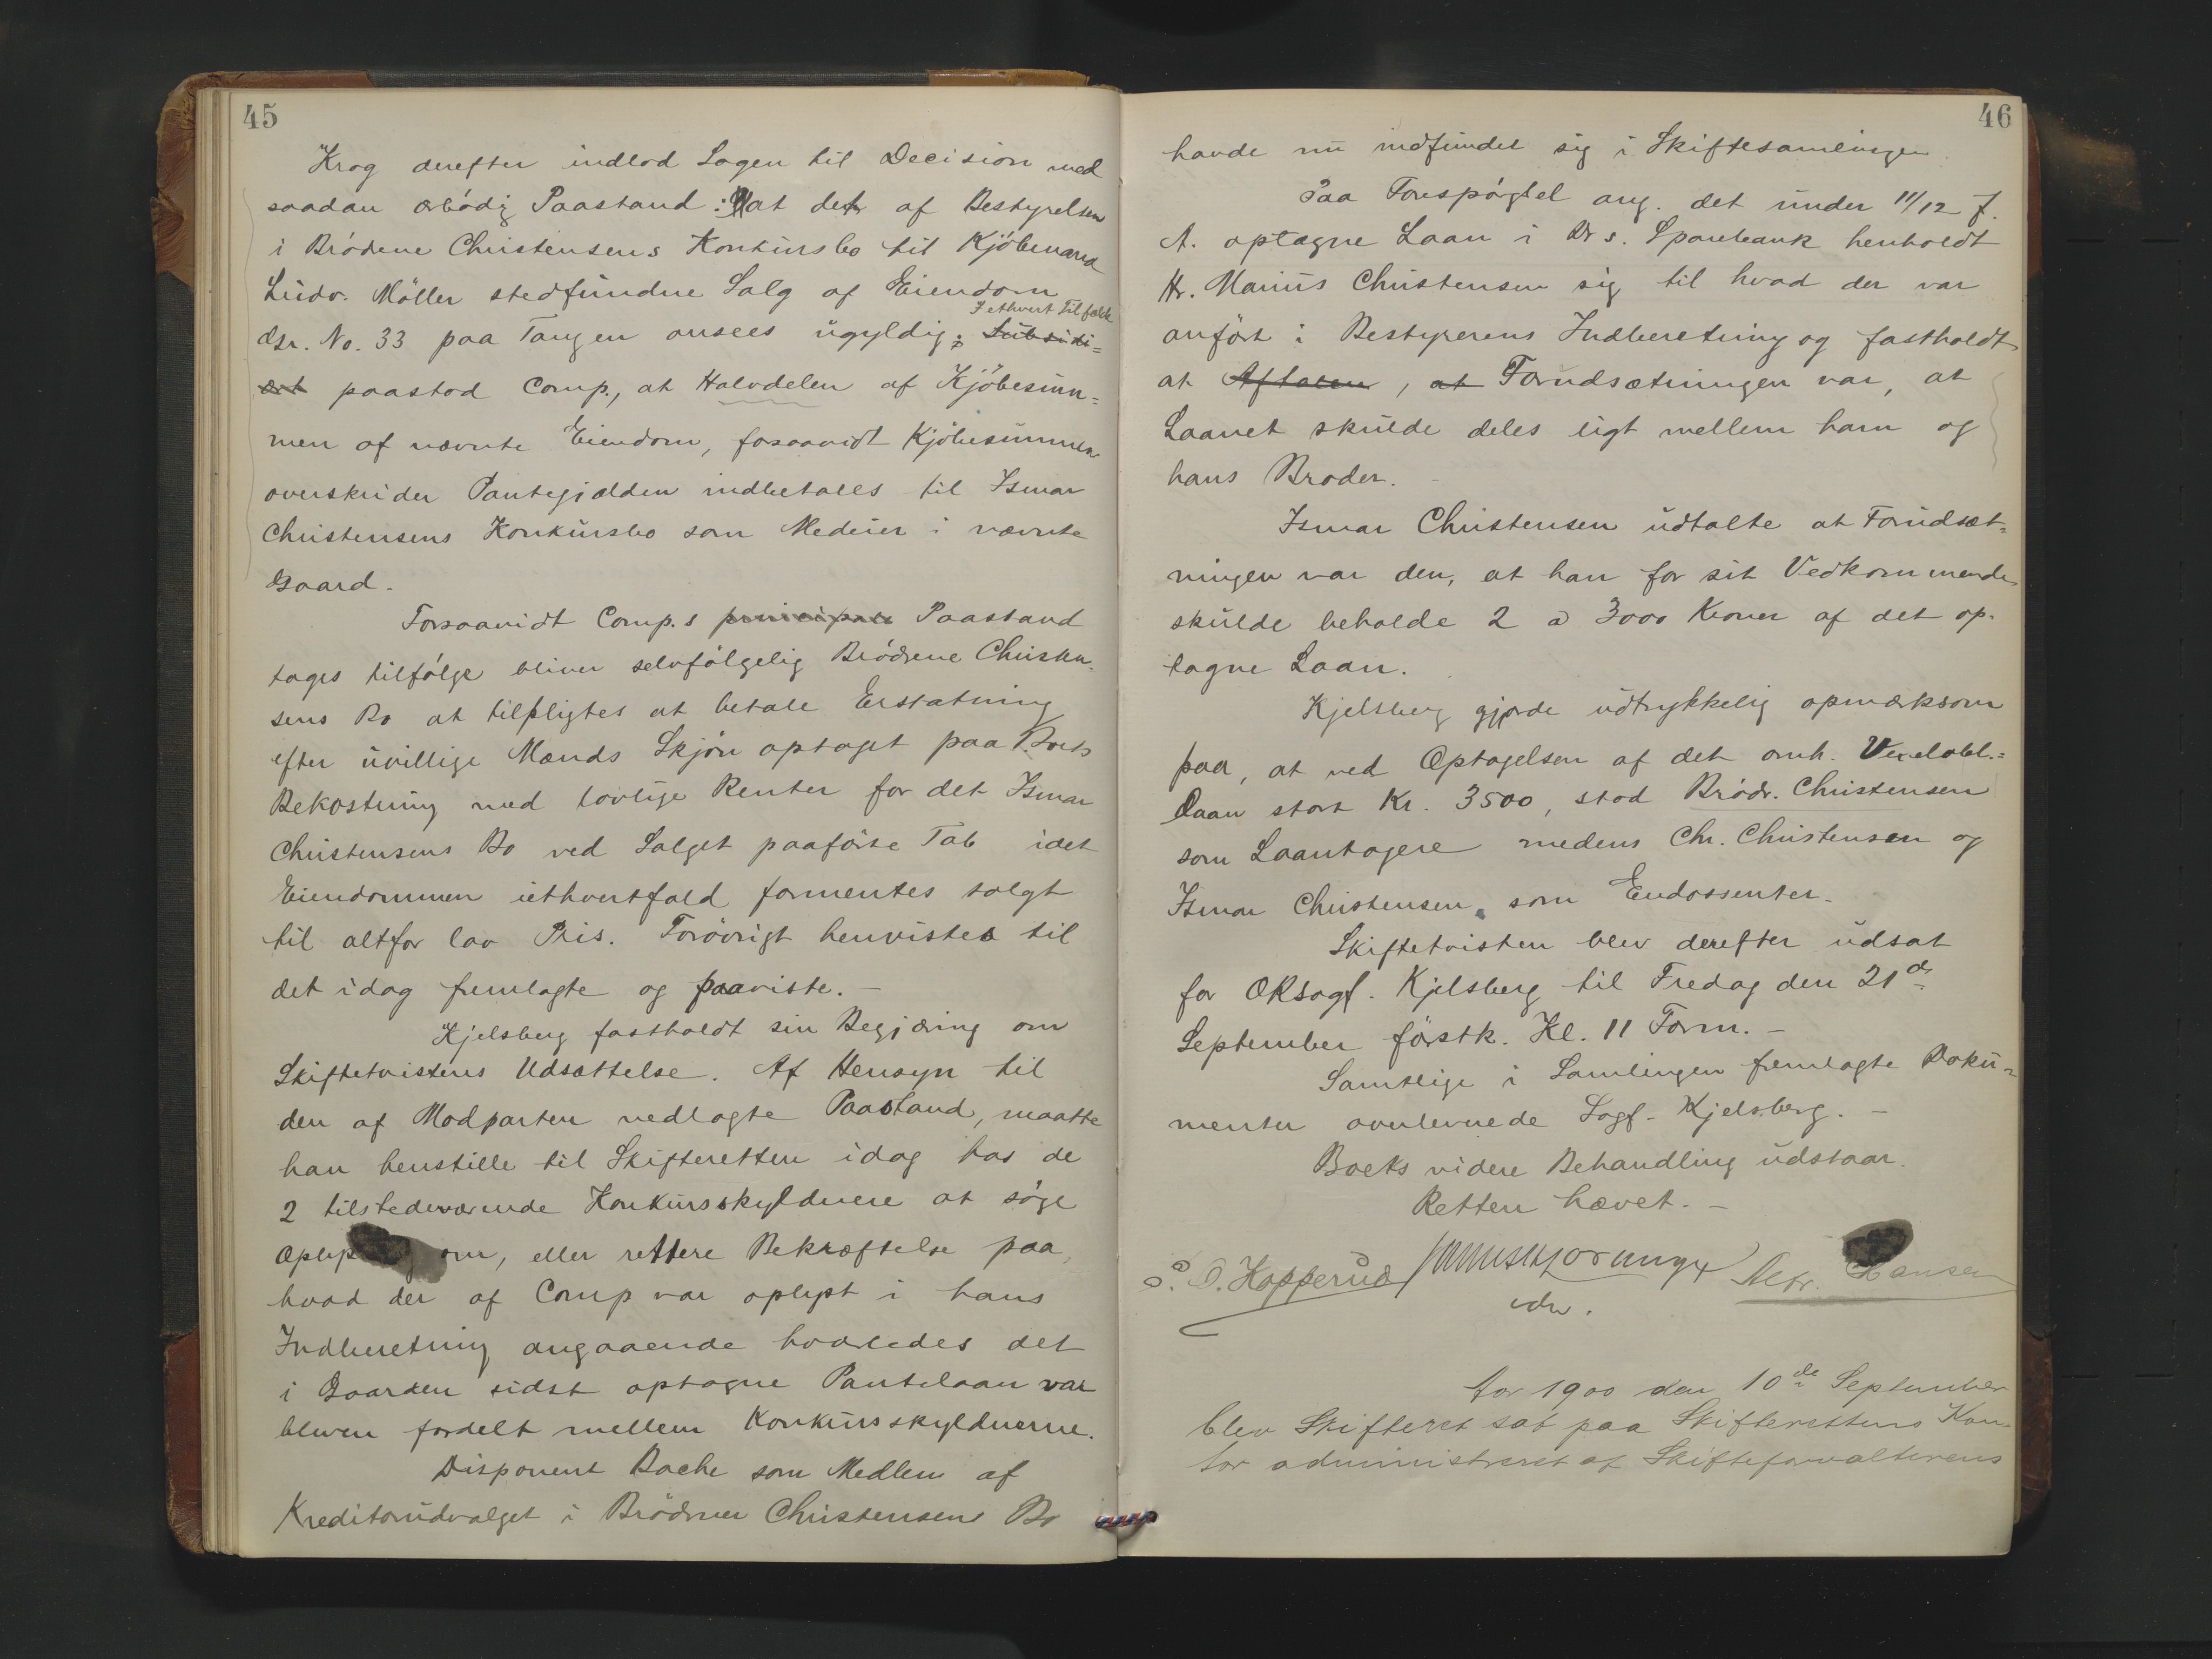 45
Krog derefter indlod Sagen til Decision med
saadan ærbödig Paastand: at det af Bestyrelsen
i Brödrene Christensens Konkursbo til Kjöbmand
Ludv. Möller stedfundne Salg af Eiendom
I ethvert Tilfælde
Gr. No. 33 paa Tangen ansees ugyldig; Subsidi=
ært paastod Comp., at Halvdelen af Kjöbesum=
men af nævnte Eiendom, forsaavidt Kjöbesummen
overskrider Pantegjælden indbetales til Ismar
Christensens Konkursbo som Medeier i nævnte
Gaard.
Forsaavidt Comp.s principale Paastand
tages tilfölge bliver selvfölgelig Brödrene Christen-
sens Bo at tilpligtes at betale Erstatning
efter uvillige Mænds Skjön optaget paa Boets
Bekostning med lovlige Renter for det Ismar
Christensens Bo ved Salget paaförte Tab idet
Eiendommen iethvertfald formentes solgt
til altfor lav Pris. Forövrigt henvistes til
det idag fremlagte og paaviste. –
Kjelsberg fastholdt sin Begjæring om
Skiftetvistens Udsættelse. Af Hensyn til
den af Modparten nedlagte Paastand, maatte
han henstille til Skifteretten idag hos de
2 tilstedeværende Konkursskyldnere at söge
om, eller rettere Bekræftelse paa,
hvad der af Comp var oplyst i hans
Indberetning angaaende hvorledes det
i Gaarden sidst optagne Pantelaan var
bleven fordelt mellem Konkursskyldnerne.
Disponent Bache som Medlem af
Kreditorudvalget i Brödrene Christensens Bo
46
havde nu indfundet sig i Skiftesamlingen
Paa Forespörgsel ang. det under 11/12 f.
A. optagne Laan i Drs. Sparebank henholdt
Hr. Marius Christensen sig til hvad der var
anfört i Bestyrerens Indberetning og fastholdt
at Aftalen, at Forudsætningen var, at
Laanet skulde deles ligt mellem ham og
hans Broder. –
Ismar Christensen udtalte at Forudsæt=
ningen var den, at han for sit Vedkommende
skulde beholde 2 a 3000 Kroner af det op-
tagne Laan.
Kjelsberg gjorde udtrykkelig opmærksom
paa, at ved Optagelsen af det omh. Vexelobl.=
Laan stort Kr. 3500, stod Brödr. Christensen
som Laantagere medens Chr. Christensen og
Ismar Christensen som Endossenter.
Skiftetvisten blev derefter udsat
for ORsagf. Kjelsberg til Fredag den 21de
September förstk. Kl. 11 Form. –
Samtlige i Samlingen fremlagte Doku=
menter overlevnede Sagf. Kjelsberg. –
Boets videre Behandling udstaar.
Retten hævet. –
O. Kopperud Alfr. Hansen
Aar 1900 den 10de September
blev Skifteret sat paa Skifterettens Kon-
tor administreret af Skifteforvalterens